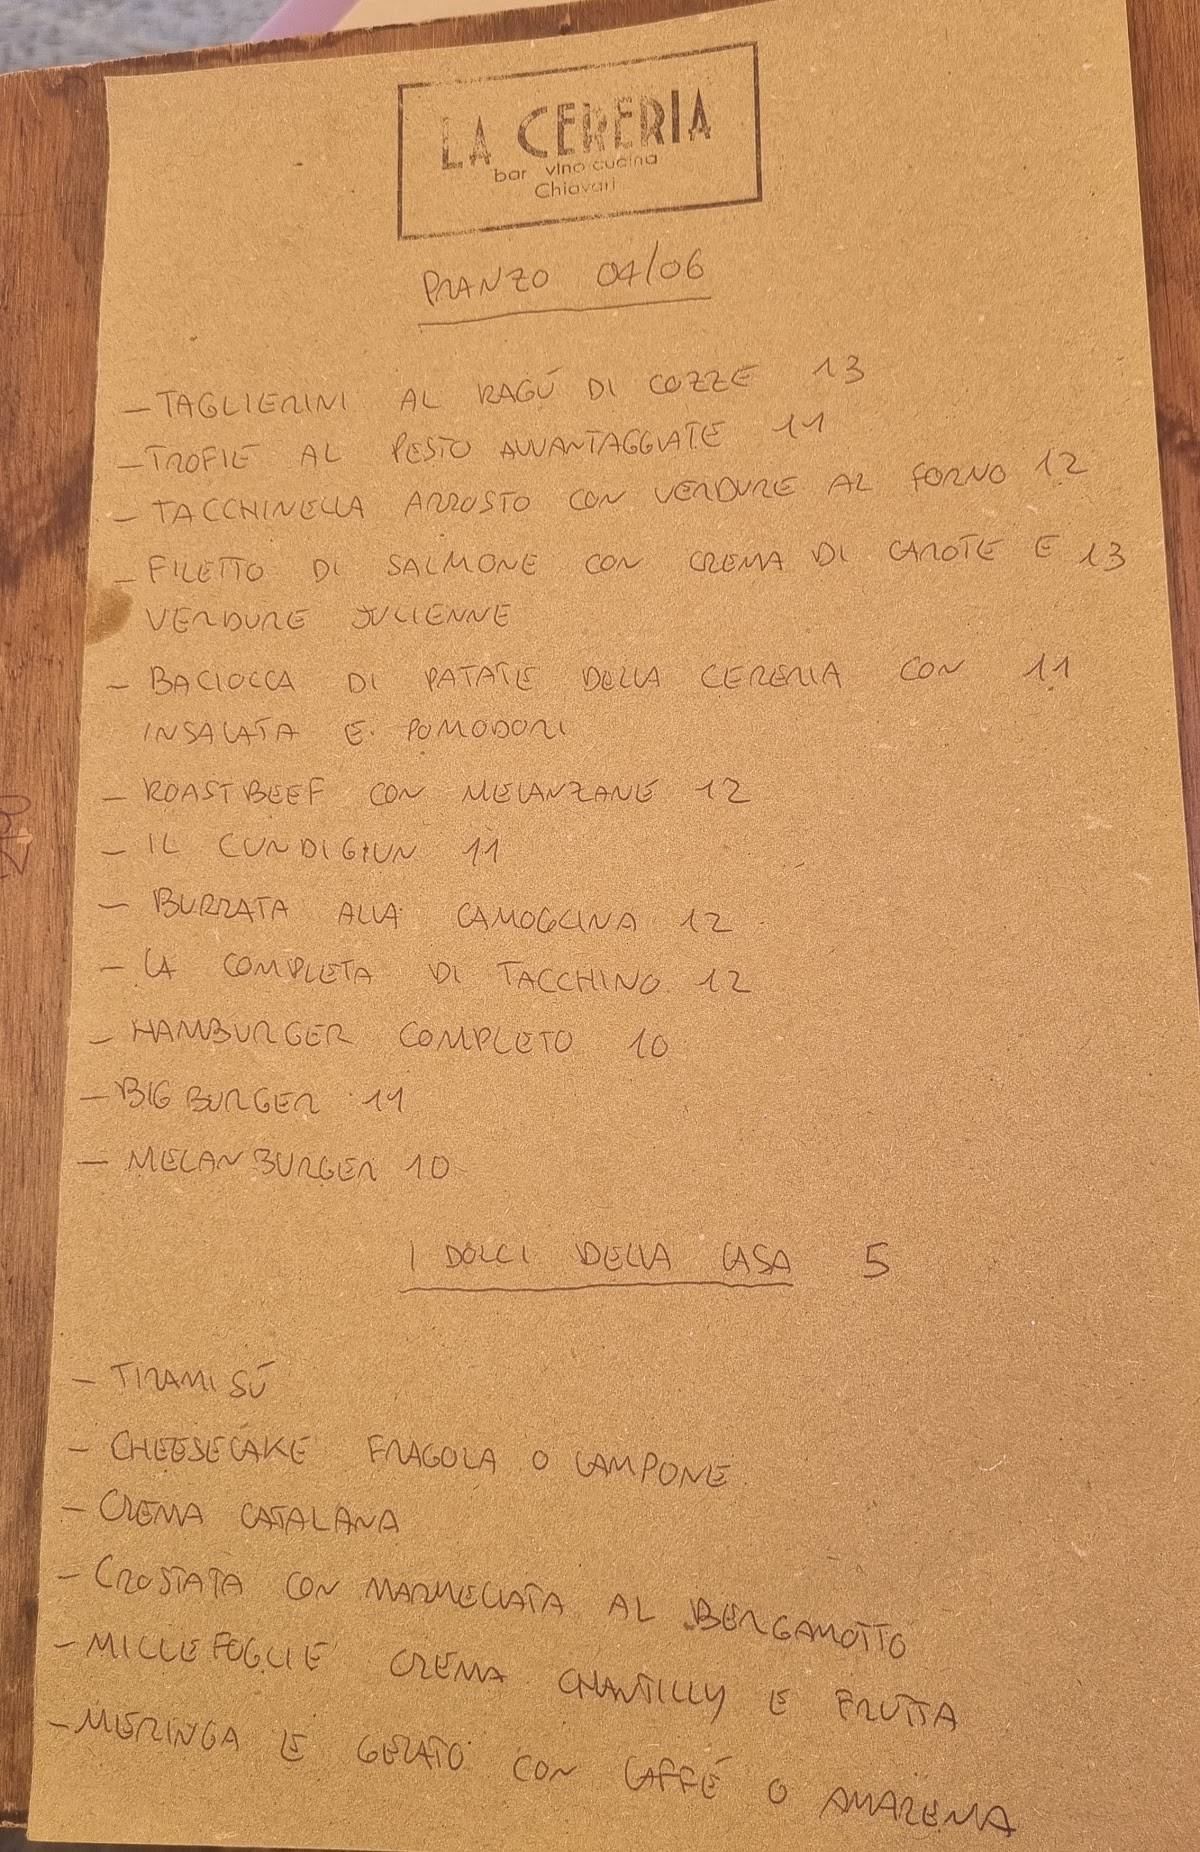 LA CERERIA
bar vino cucina
Chiavari
PRANZO 04/06
- TAGLIERINI AL RAGÚ DI COZZE 13
- TROFIE AL PESTO AVVANTAGGIATE 11
- TACCHINELLA ARROSTO CON VERDURE AL FORNO 12
- FILETTO DI SALMONE CON CREMA DI CAROTE E 13
VERDURE JULIENNE
- BACIOCCA DI PATATE DELLA CERERIA CON 11
INSALATA E POMODORI
- ROASTBEEF CON MELANZANE 12
- IL CUNDIGIUN 11
- BURRATA ALLA CAMOGLINA 12
- LA COMPLETA DI TACCHINO 12
- HAMBURGER COMPLETO 10
- BIG BURGER 11
- MELANBURGER 10
I DOLCI DELLA CASA 5
- TIRAMISÚ
- CHEESECAKE FRAGOLA O LAMPONE
- CREMA CATALANA
- CROSTATA CON MARMELLATA AL BERGAMOTTO
- MILLEFOGLIE CREMA CHANTILLY E FRUTTA
- MERINGA E GELATO CON CAFFÉ O AMARENA